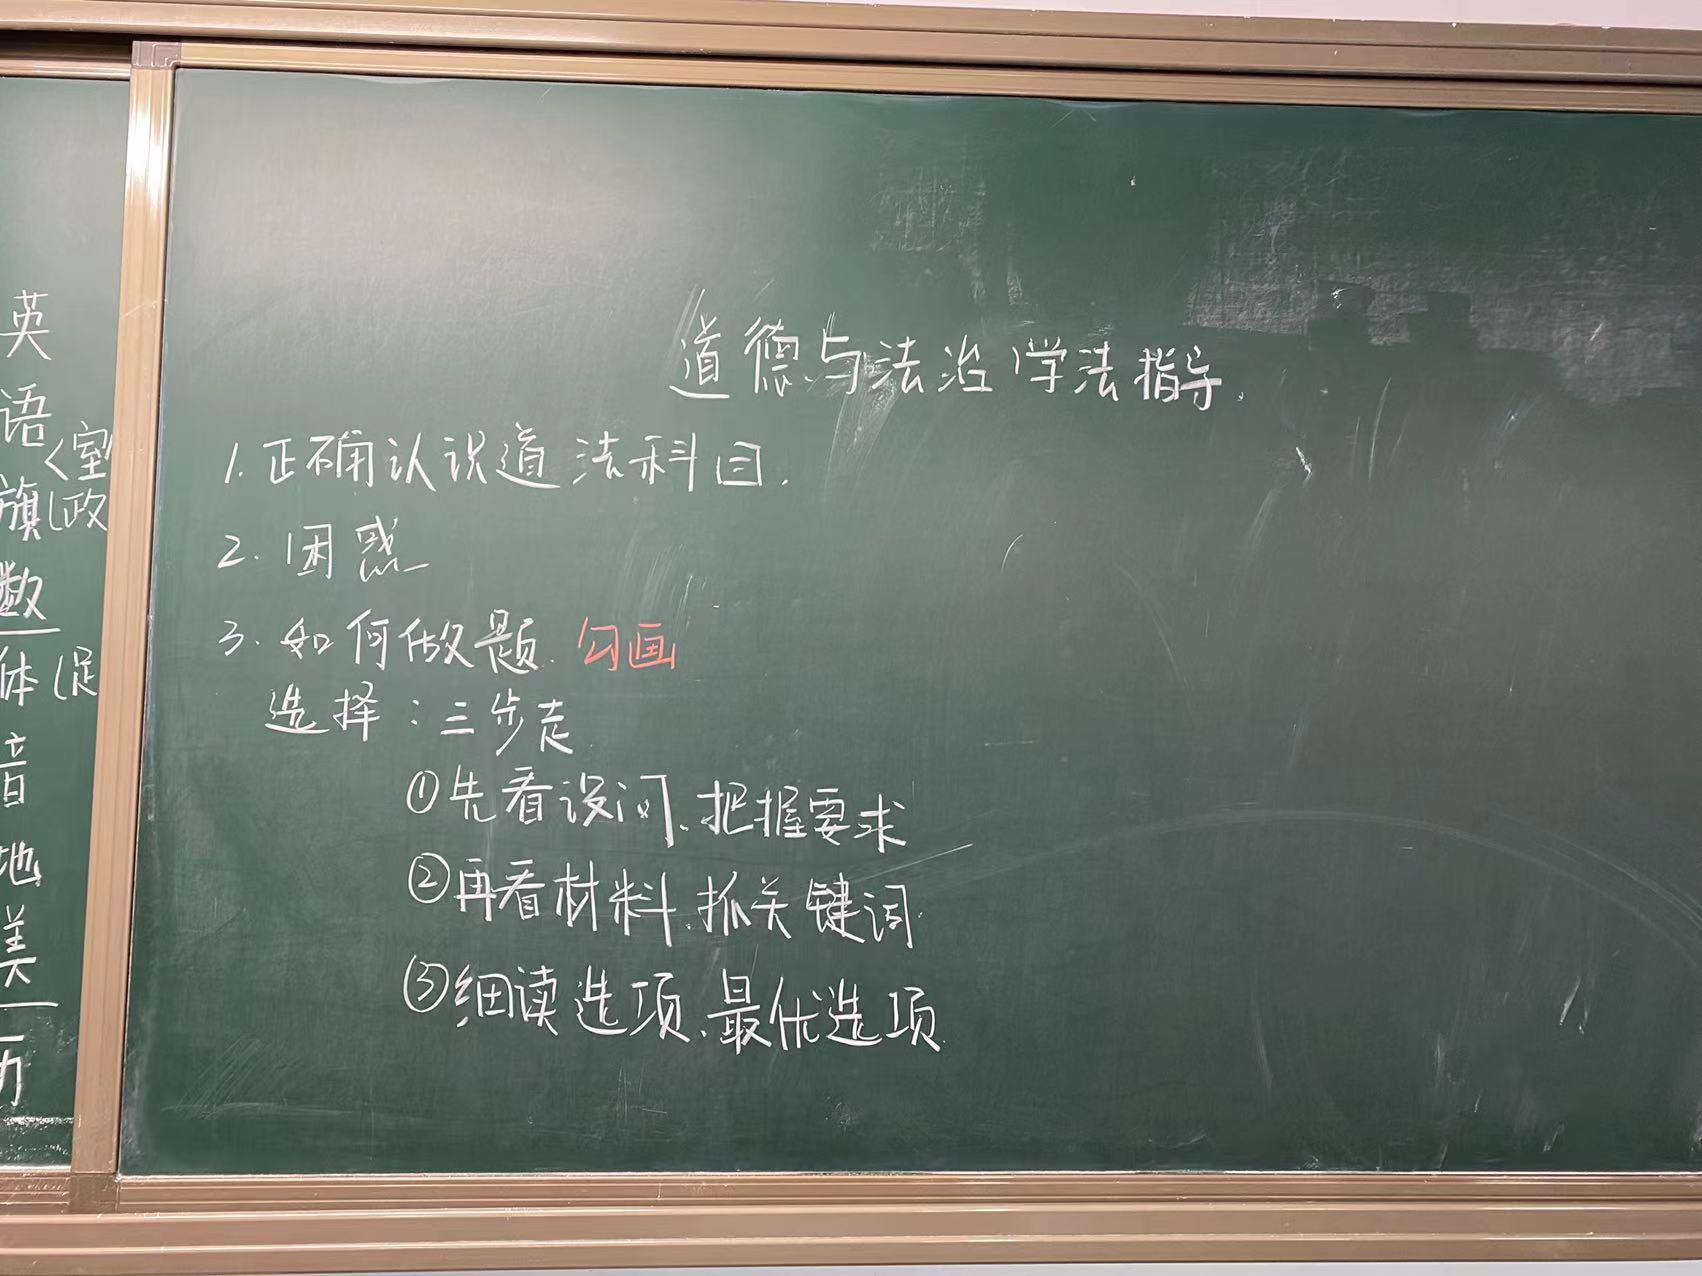 英
语〈室
旗(政
数
体(足
音
地
美
历
道德与法治学法指导.
1.正确认识道法科目.
2.困惑
3.如何做题.勾画
选择:三步走
①先看设问、把握要求
②再看材料、抓关键词.
③细读选项、最优选项